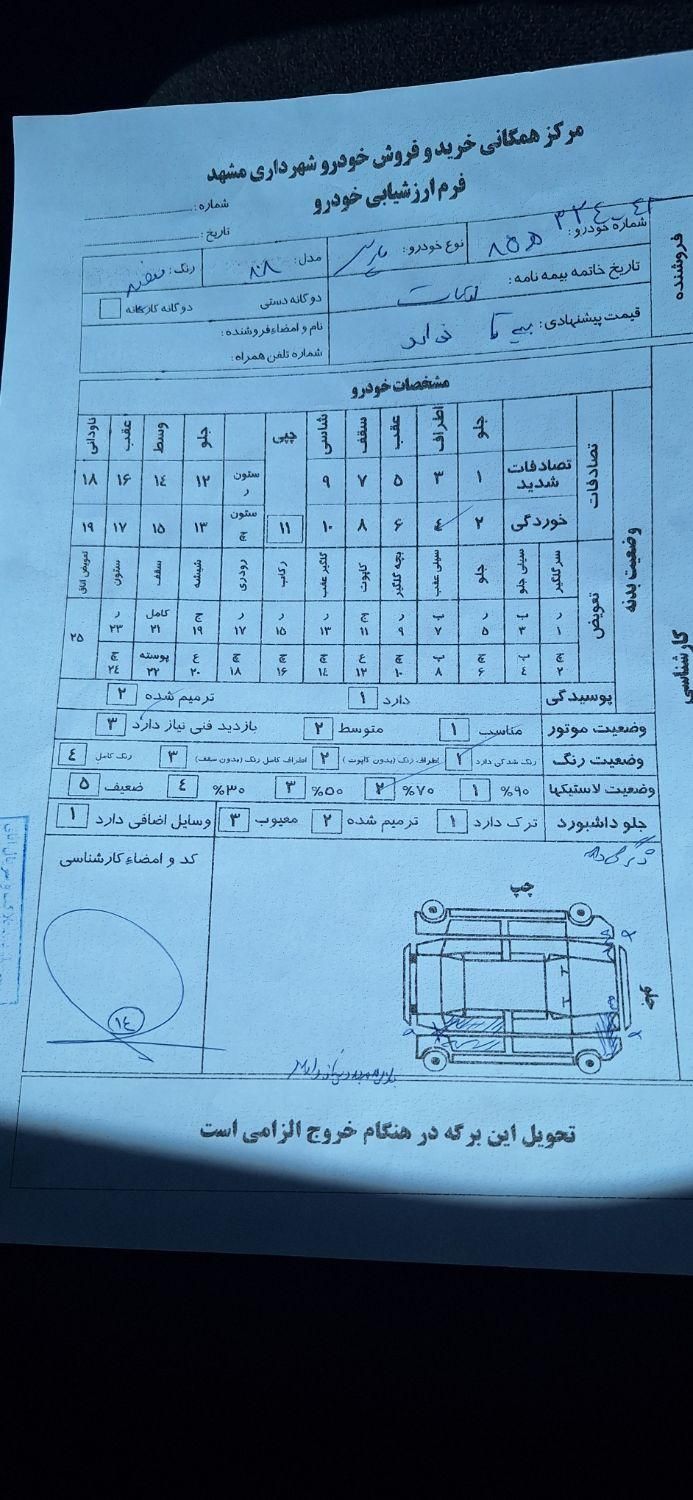 مرکز همگانی خرید و فروش خودرو شهرداری مشهد
فرم ارزشیابی خودرو
شماره:
تاریخ:
فروشنده
شماره خودرو:
نوع خودرو: پارس
مدل: ۸۸
رنگ: سفید
تاریخ خاتمه بیمه نامه:
دوگانه دستی
دوگانه کارخانه
قیمت پیشنهادی:
نام و امضاء فروشنده:
شماره تلفن همراه:
مشخصات خودرو
کارشناسی
وضعیت بدنه
تصادفات
جلو اطراف عقب سقف شاسی پاپی جلو وسط عقب ناودانی
تصادفات شدید ۱ ۳ ۵ ۷ ۹ ستون ر ۱۲ ۱۴ ۱۶ ۱۸
خوردگی ۲ ۴ ۶ ۸ ۱۰ ۱۱ ستون چ ۱۳ ۱۵ ۱۷ ۱۹
تعویض
سر گلگیر سینی جلو جلو سینی عقب بچه گلگیر کاپوت گلگیر عقب رکاب رودری شیشه سقف ستون تعویض اتاق
ر ۱ ۳ ر ۵ ۷ ر ۹ ج ۱۱ ر ۱۳ ر ۱۵ ر ۱۷ ج ۱۹ کامل ۲۱ ر ۲۳ ۲۵
چ ۲ ۴ چ ۶ ۸ چ ۱۰ ع ۱۲ چ ۱۴ چ ۱۶ چ ۱۸ ع ۲۰ پوسته ۲۲ چ ۲۴
پوسیدگی دارد ۱ ترمیم شده ۲
وضعیت موتور مناسب ۱ متوسط ۲ بازدید فنی نیاز دارد ۳
وضعیت رنگ رنگ شدگی دارد ۱ اطراف رنگ (بدون کاپوت) ۲ اطراف کامل رنگ (بدون سقف) ۳ رنگ کامل ۴
وضعیت لاستیکها ۹۰% ۱ ۷۰% ۲ ۵۰% ۳ ۳۰% ۴ ضعیف ۵
جلو داشبورد ترک دارد ۱ ترمیم شده ۲ معیوب ۳ وسایل اضافی دارد ۱
کد و امضاء کارشناسی
چپ
۱۴
تحویل این برگه در هنگام خروج الزامی است